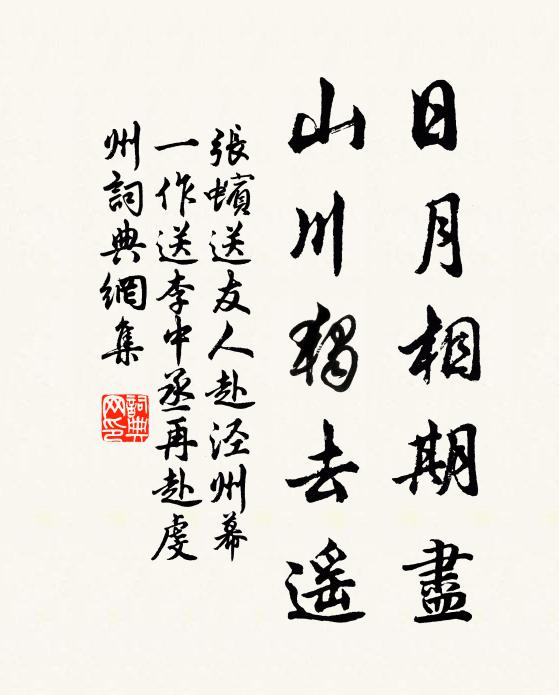 日月相期盡
山川獨去遥
張蠙送友人赴泾州幕
一作送李中丞再赴虔
州詞典網集
詞典网印